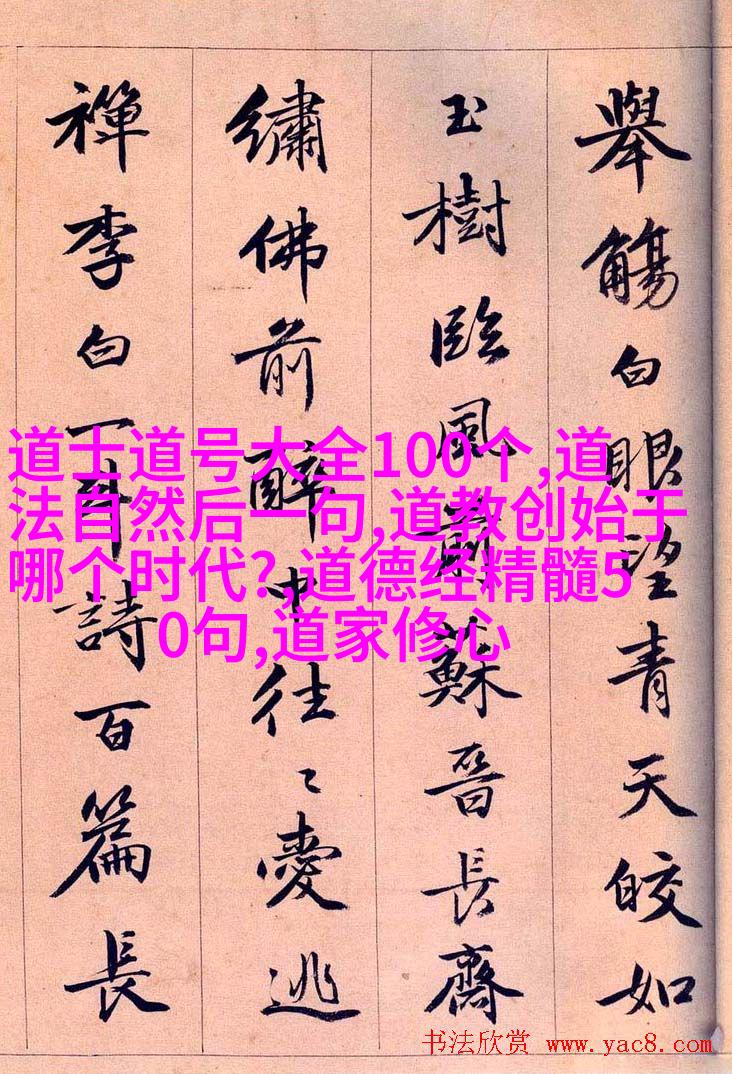 舉觴白眼望青天皎如
玉樹臨風前蘇晉長齋
繡佛前醉中往〻愛逃
禪李白一斗詩百篇長
道士道号大全100个,道
法自然后一句,道教创始于
哪个时代?,道德经精髓5
0句,道家修心
书法欣赏 www.yac8.com